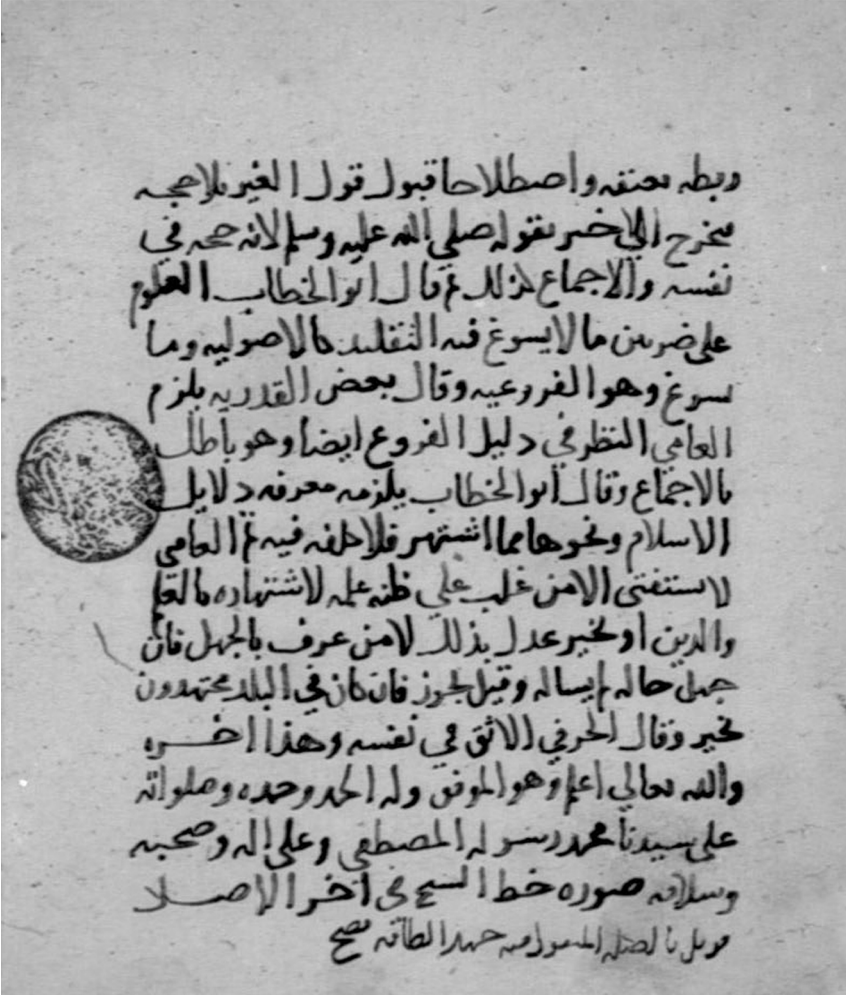 وربطه بعنقه واصطلاحا قبول قول الغير بلا حجه
فيخرج الاخذ بقوله صلي الله عليه وسلم لانه حجه في
نفسه والاجماع كذلك ثم قال ابو الخطاب العلوم
على ضربين ما لا يسوغ فيه التقليد كالاصوليه وما
يسوغ وهو الفروعيه وقال بعض القدريه يلزم
العامي النظر في دليل الفروع ايضا وهو باطل
بالاجماع وقال ابو الخطاب يلزمه معرفه دلايل
الاسلام ونحوها مما اشتهر فلا كلفه فيه ثم العامي
لا يستفتي الا من غلب علي ظنه علمه لاشتهاره بالعلم
والدين او بخبر عدل بذلك لا من عرف بالجهل فان
جهل حاله لم يساله وقيل يجوز فان كان في البلد مجتهدون
تخير وقال الخرقي الاوثق في نفسه وهذا اخره
والله تعالي اعلم وهو الموفق وله الحمد وحده وصلواته
على سيدنا محمد رسوله المصطفي وعلى اله وصحبه
وسلامه صوره خط الشيخ في اخر الاصل
قوبل بالاصل المنقول منه جهد الطاقه فصح